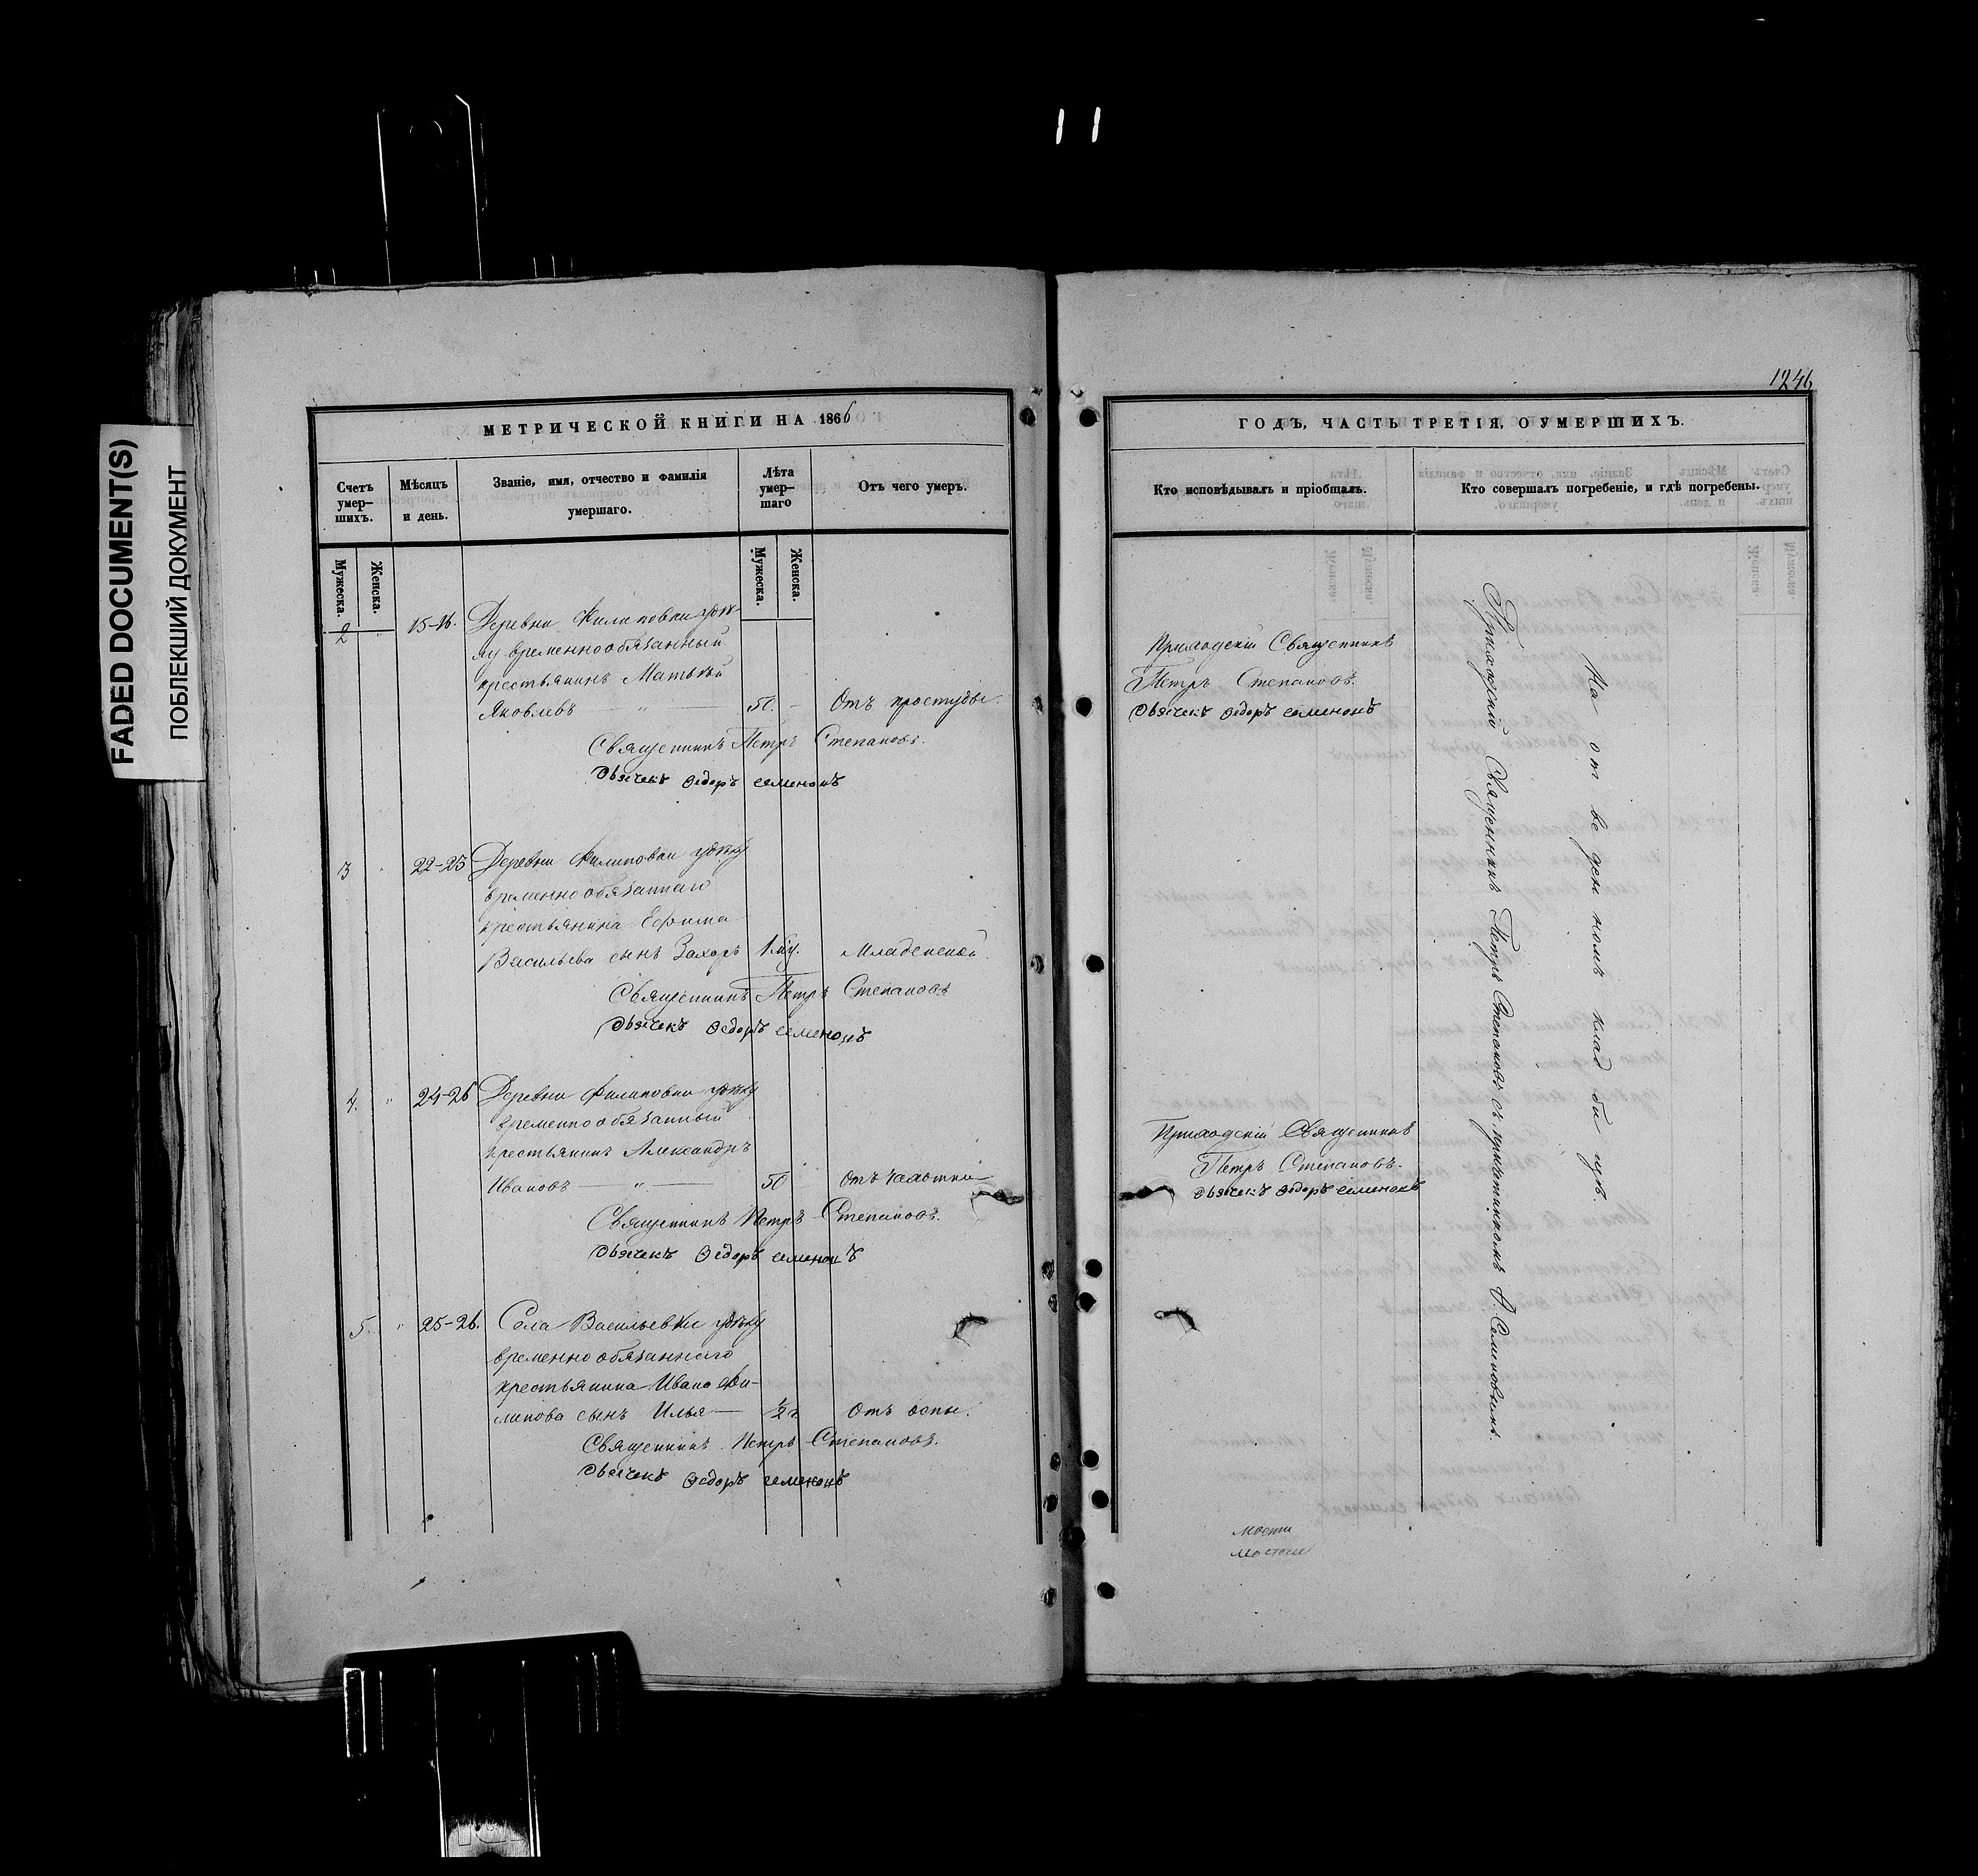 FADED DOCUMENT(S)
ПОБЛЕКШИЙ ДОКУМЕНТ
МЕТРИЧЕСКОЙ КНИГИ НА 1866
Счетъ умер-
шихъ.
Мѣсяцъ
и день.
Званіе, имя, отчество и фамилія
умершаго.
Лѣта
умер-
шаго
Отъ чего умеръ.
Мужеска.
Женска.
Мужеска.
Женска.
2 " 15-16. Деревни Филиповки
временнообязанный
крестьянинъ Матвѣй
Яковлевъ — " — 50. — Отъ простуды.
Священникъ Петръ Степановъ.
Дьячекъ Ѳедоръ семеновъ
3 " 22-23 Деревни Филиповки
временнообязаннаго
крестьянина Ефима
Васильева сынъ Захаръ Младенской.
Священникъ Петръ Степановъ
Дьячекъ Ѳедоръ семеновъ
4. " 24-26 Деревни Филиповки
временнообязанный
крестьянинъ Александръ
Ивановъ — " — 50 Отъ чахотки
Священникъ Петръ Степановъ.
Дьячекъ Ѳедоръ семеновъ
5. " 25-26. Села Васильевки
временнообязаннаго
крестьянина Ивана Фи-
липова сынъ Илья — 1/2 г. Отъ оспы.
Священникъ Петръ Степановъ.
Дьячекъ Ѳедоръ семеновъ
1246
ГОДЪ, ЧАСТЬ ТРЕТІЯ, О УМЕРШИХЪ.
Кто исповѣдывалъ и пріобщалъ.
Кто совершалъ погребеніе, и гдѣ погребены.
Приходскій Священникъ
Петръ Степановъ.
Дьячекъ Ѳедоръ семеновъ
Приходскій Священникъ
Петръ Степановъ.
Дьячекъ Ѳедоръ семеновъ
Приходскій Священникъ Петръ Степановъ съ причетникомъ Ѳ. Семеновымъ.
На от ве ден номъ клад би щѣ.